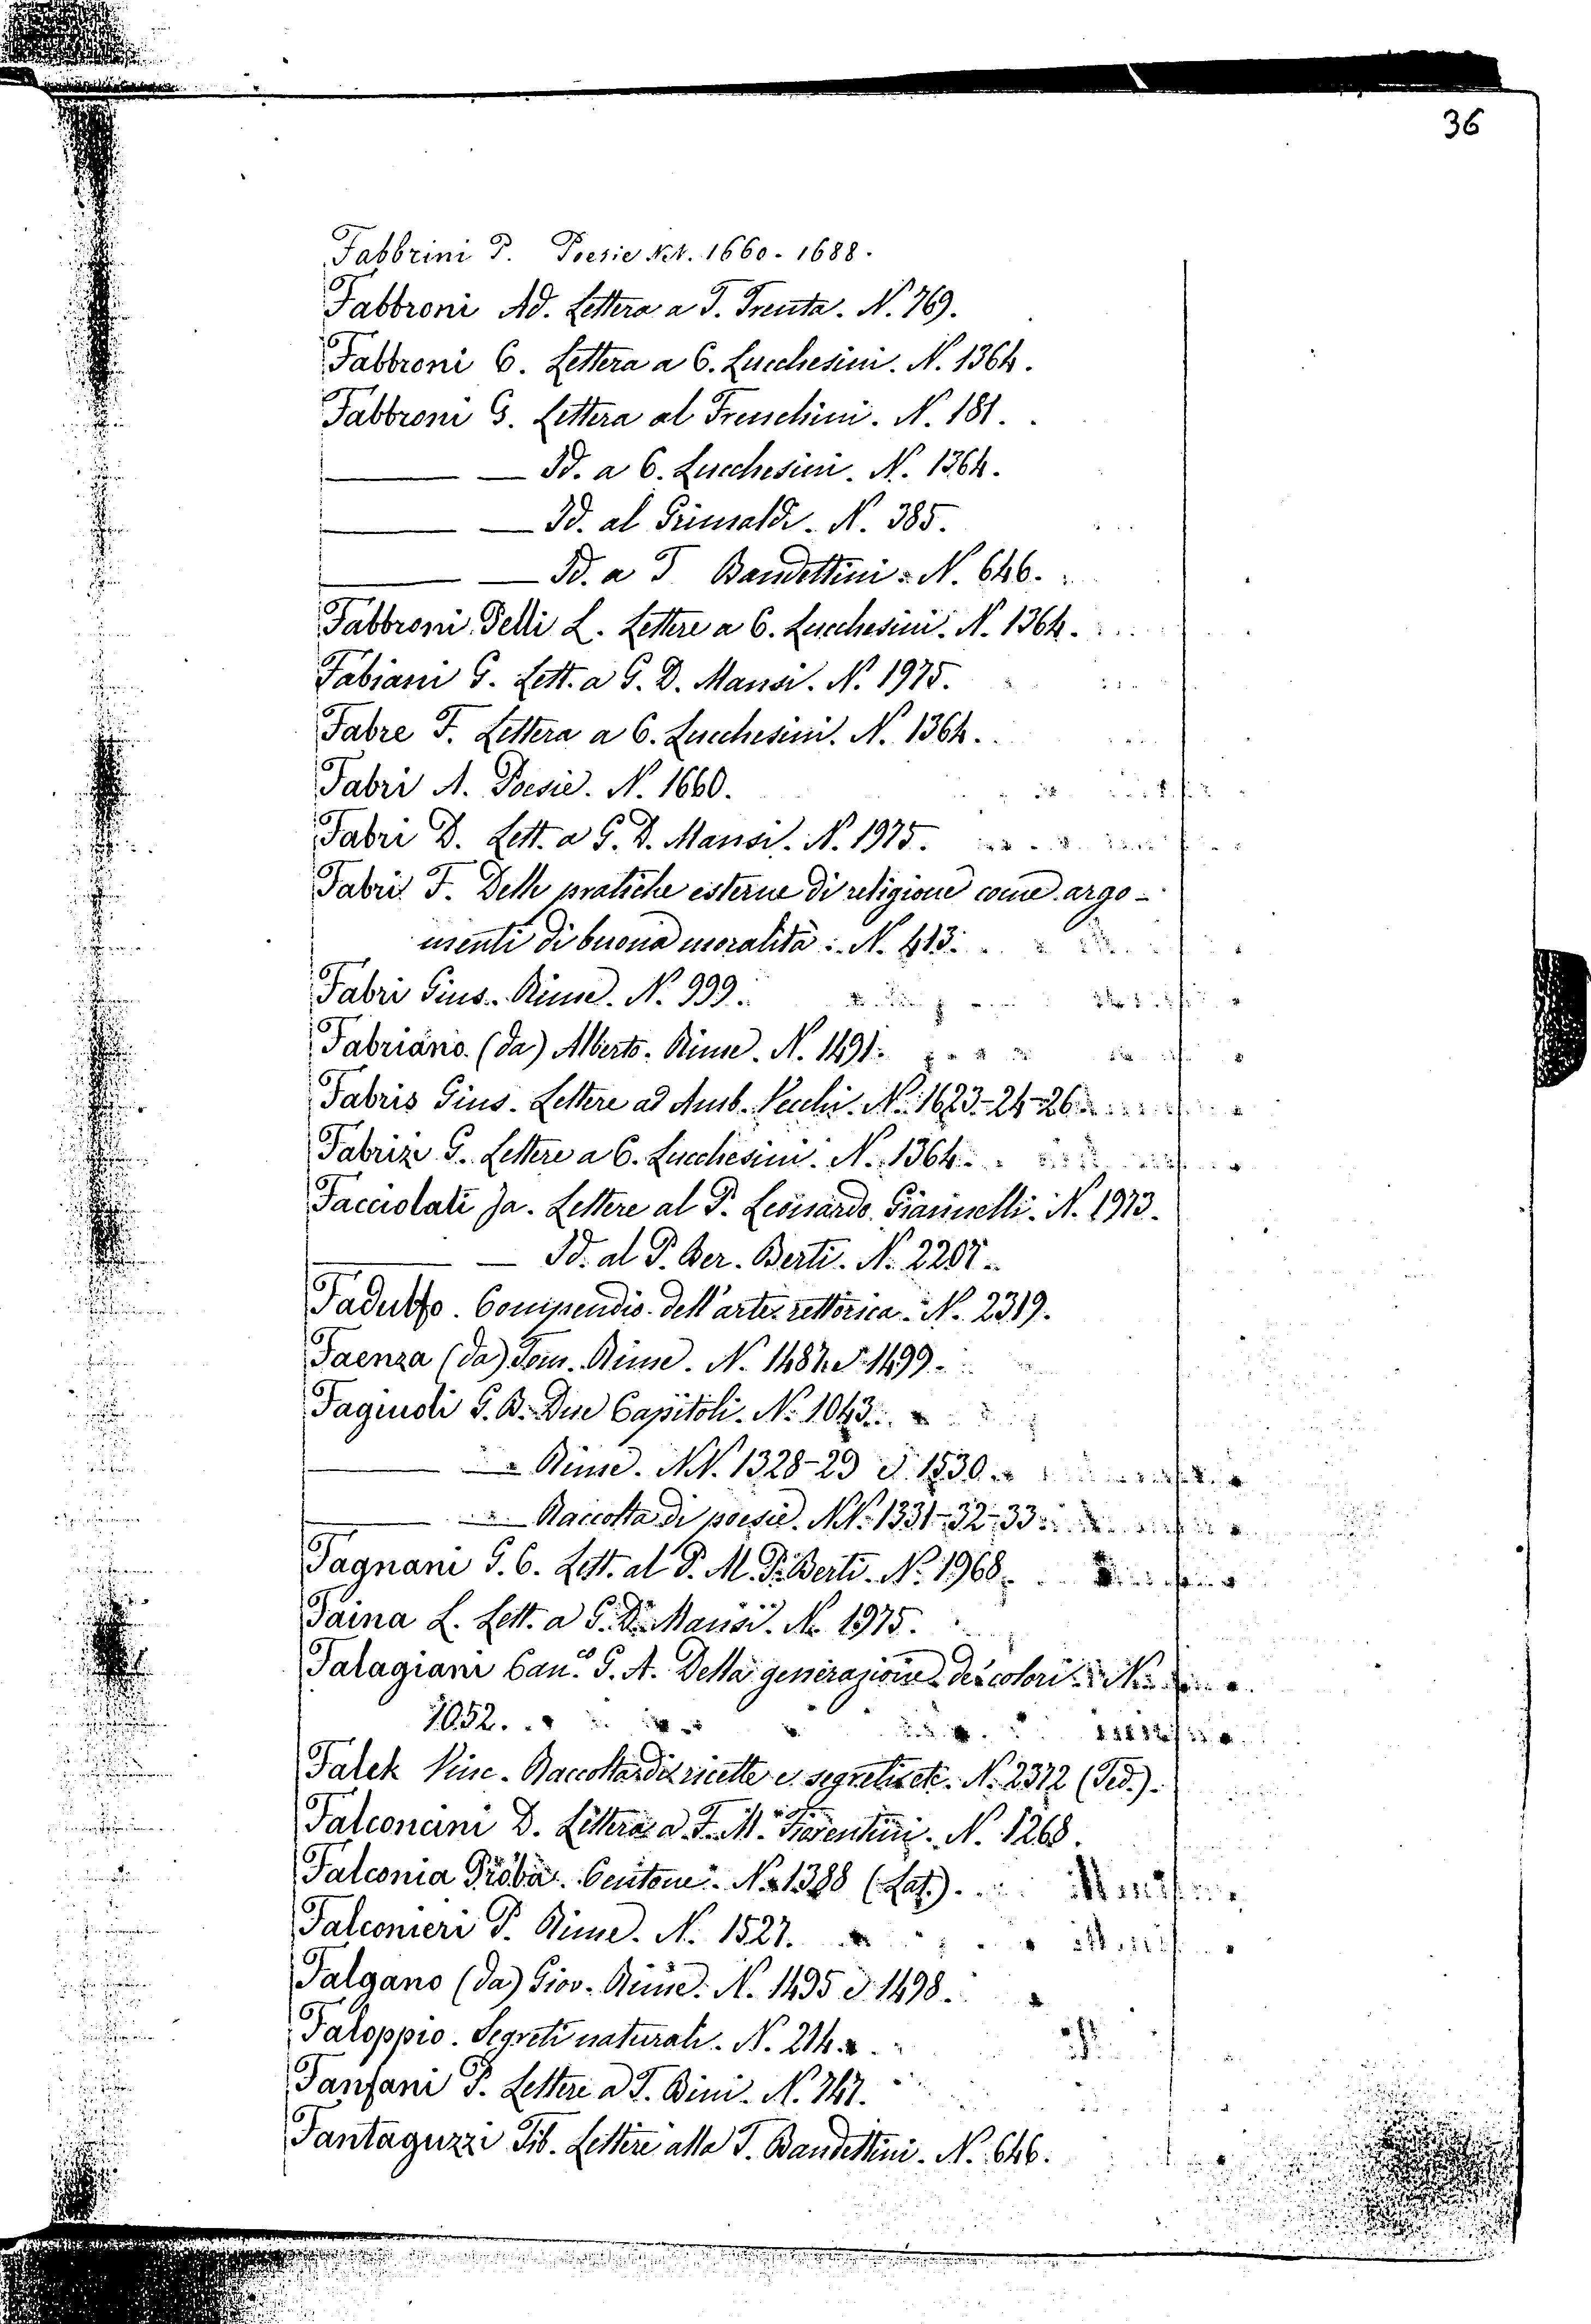 36
Fabbrini P. Poesie NN. 1660 - 1688.
Fabbroni Ad. Lettera a T. Trenta. N. 769.
Fabbroni C. Lettera a C. Lucchesini. N. 1364.
Fabbroni G. Lettera al Freschini. N. 181.
—— — Id. a C. Lucchesini. N. 1364.
—— — Id. al Grimaldi. N. 385.
—— — Id. a T. Bandettini. N. 646.
Fabbroni Pelli L. Lettere a C. Lucchesini. N. 1364.
Fabiani G. Lett. a G. D. Mansi. N. 1975.
Fabre F. Lettera a C. Lucchesini. N. 1364.
Fabri A. Poesie. N. 1660.
Fabri D. Lett. a G. D. Mansi. N. 1975.
Fabri F. Delle pratiche esterne di religione come argo-
menti di buona moralità. N. 413.
Fabri Gius. Rime. N. 999.
Fabriano (da) Alberto. Rime. N. 1491.
Fabris Gius. Lettere ad Amb. Vecchi. N. 1623-24-26.
Fabrizi G. Lettere a C. Lucchesini. N. 1364.
Facciolati Ja. Lettere al P. Leonardo Giannelli. N. 1973.
—— — Id. al P. Ber. Berti. N. 2207.
Fadulfo. Compendio dell'arte rettorica. N. 2319.
Faenza (da) Tom. Rime. N. 1487 e 1499.
Fagiuoli G. B. Due Capitoli. N. 1043.
—— — Rime. NN. 1328-29 e 1530.
—— — Raccolta di poesie. NN. 1331-32-33.
Fagnani G. C. Lett. al P. M. P. Berti. N. 1968.
Faina L. Lett. a G. D. Mansi. N. 1975.
Falagiani Can.co G. A. Della generazione dei colori. N.
1052.
Falek Vinc. Raccolta di ricette e segreti etc. N. 2372 (Ted.).
Falconcini D. Lettera a F. M. Fiorentini. N. 1268.
Falconia Proba. Centone. N. 1388 (Lat.).
Falconieri P. Rime. N. 1527.
Falgano (da) Giov. Rime. N. 1495 e 1498.
Faloppio. Segreti naturali. N. 214.
Fanfani P. Lettere a T. Bini. N. 747.
Fantaguzzi Tib. Lettere alla T. Bandettini. N. 646.